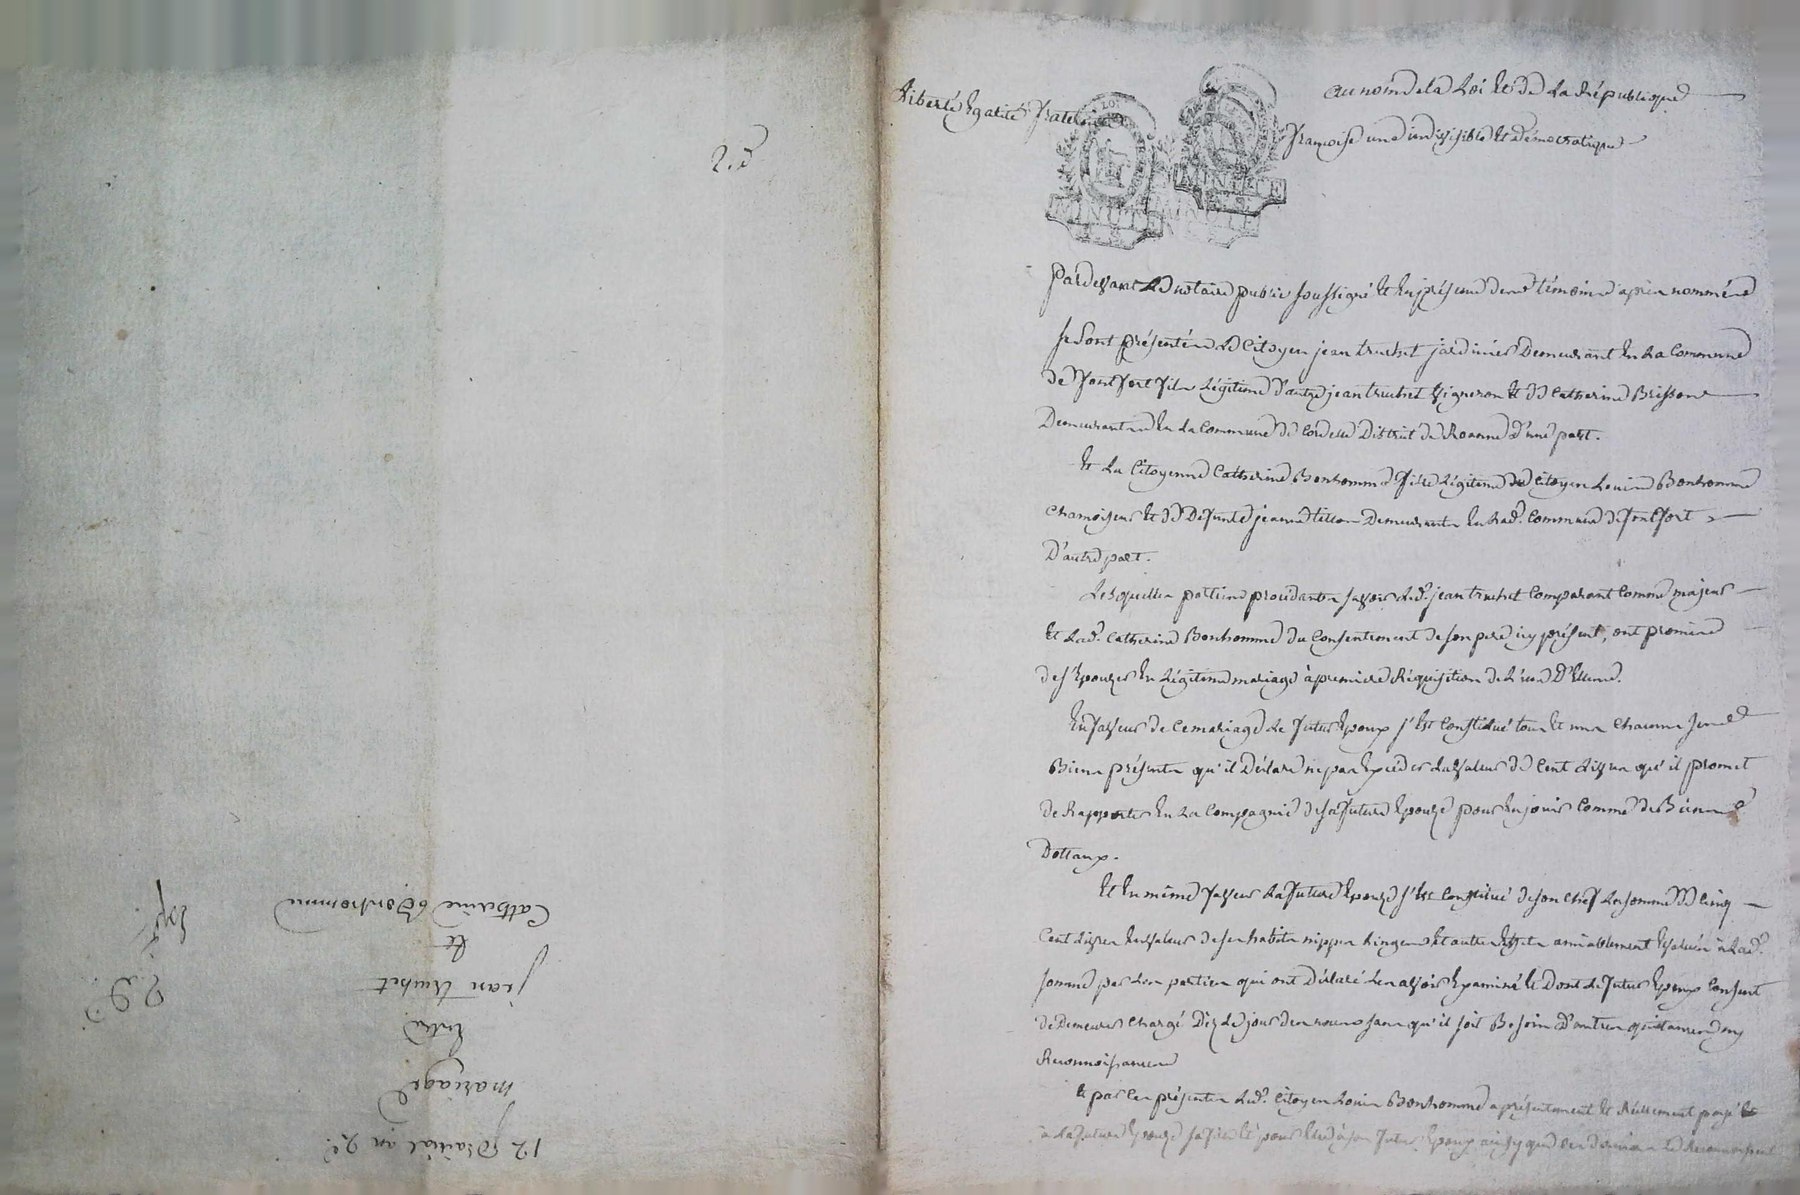 2.d
Liberté Egalité fraternité
au nom de la Loi Et de La République
françoise une indivisible Et démocratique
LOI
MINUTE
MINUTE
Pardevant Le notaire public soussigné Et En présence des témoins après nommés
se sont présentés Le Citoyen jean truchet jardinier Demeurant En La Commune
de fontfort fils Légitime d'autre jean truchet Vigneron Et de Catherine Brisson
Demeurants En La Commune de Cordelle District de Roanne d'une part.
Et La Citoyenne Catherine Bonhomme fille Légitime du Citoyen Louis Bonhomme
Chamoiseur Et de Défunte jeanne Demeurants En Lad. Commune de fontfort
D'autre part.
Lesquelles parties procédantes savoir Led. jean truchet Comparant Comme majeur
Et Lad. Catherine Bonhomme du Consentement de son pere icy présent, ont promis
de s'Epouzer En Légitime mariage à premiere Réquisition de L'un D'Eux.
En faveur de Ce mariage Le futur Epoux s'Est Constitué tous Et uns Chacuns ses
Biens présents qu'il Déclare ne pas Excéder La valeur de Cent Livres qu'il promet
de Rapporter En La Compagnie de sa future Epouze pour En jouir Comme de Biens
Dottaux.
Et En même faveur La future Epouze s'Est Constitué de son Chef La somme de Cinq
Cent Livres En valeur de ses habits nippes Linges Et autres Effets amiablement Evalués à Lad.
somme par Les parties qui ont Déclaré Les avoir Examiné Et Dont Le futur Epoux Consent
de Demeurer Chargé Dèz Le jour des noces sans qu'il soit Besoin d'autres quittances ny
Reconnoissances
Et par Ces présentes Led. Citoyen Louis Bonhomme a présentement Et Réellement payé
à La future Epouze sa fille Et pour Elle à son futur Epoux ainsy que Ces derniers Le Reconnoissent
12 prairial an 2.e
mariage
Entre
jean truchet
Et
Catherine Bonhomme